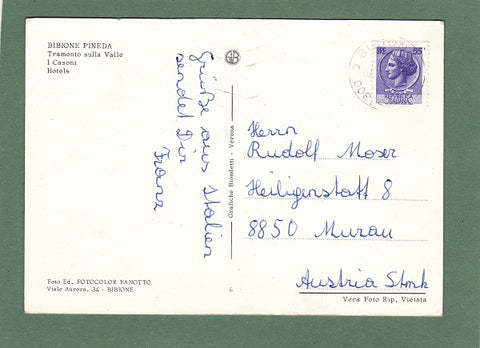 BIBIONE PINEDA
Tramonto sulla Valle
I Casoni
Hotels
Grüße aus Italien
sendet Dir
Franz
Grafiche Biondetti - Verona
55
REPUBBLICA
ITALIANA
Herrn
Rudolf Moser
Heiligenstatt 8
8850 Murau
Austria Stmk
Foto Ed. FOTOCOLOR FANOTTO
Viale Aurora, 34 - BIBIONE
6
Vera Foto Rip. Vietata